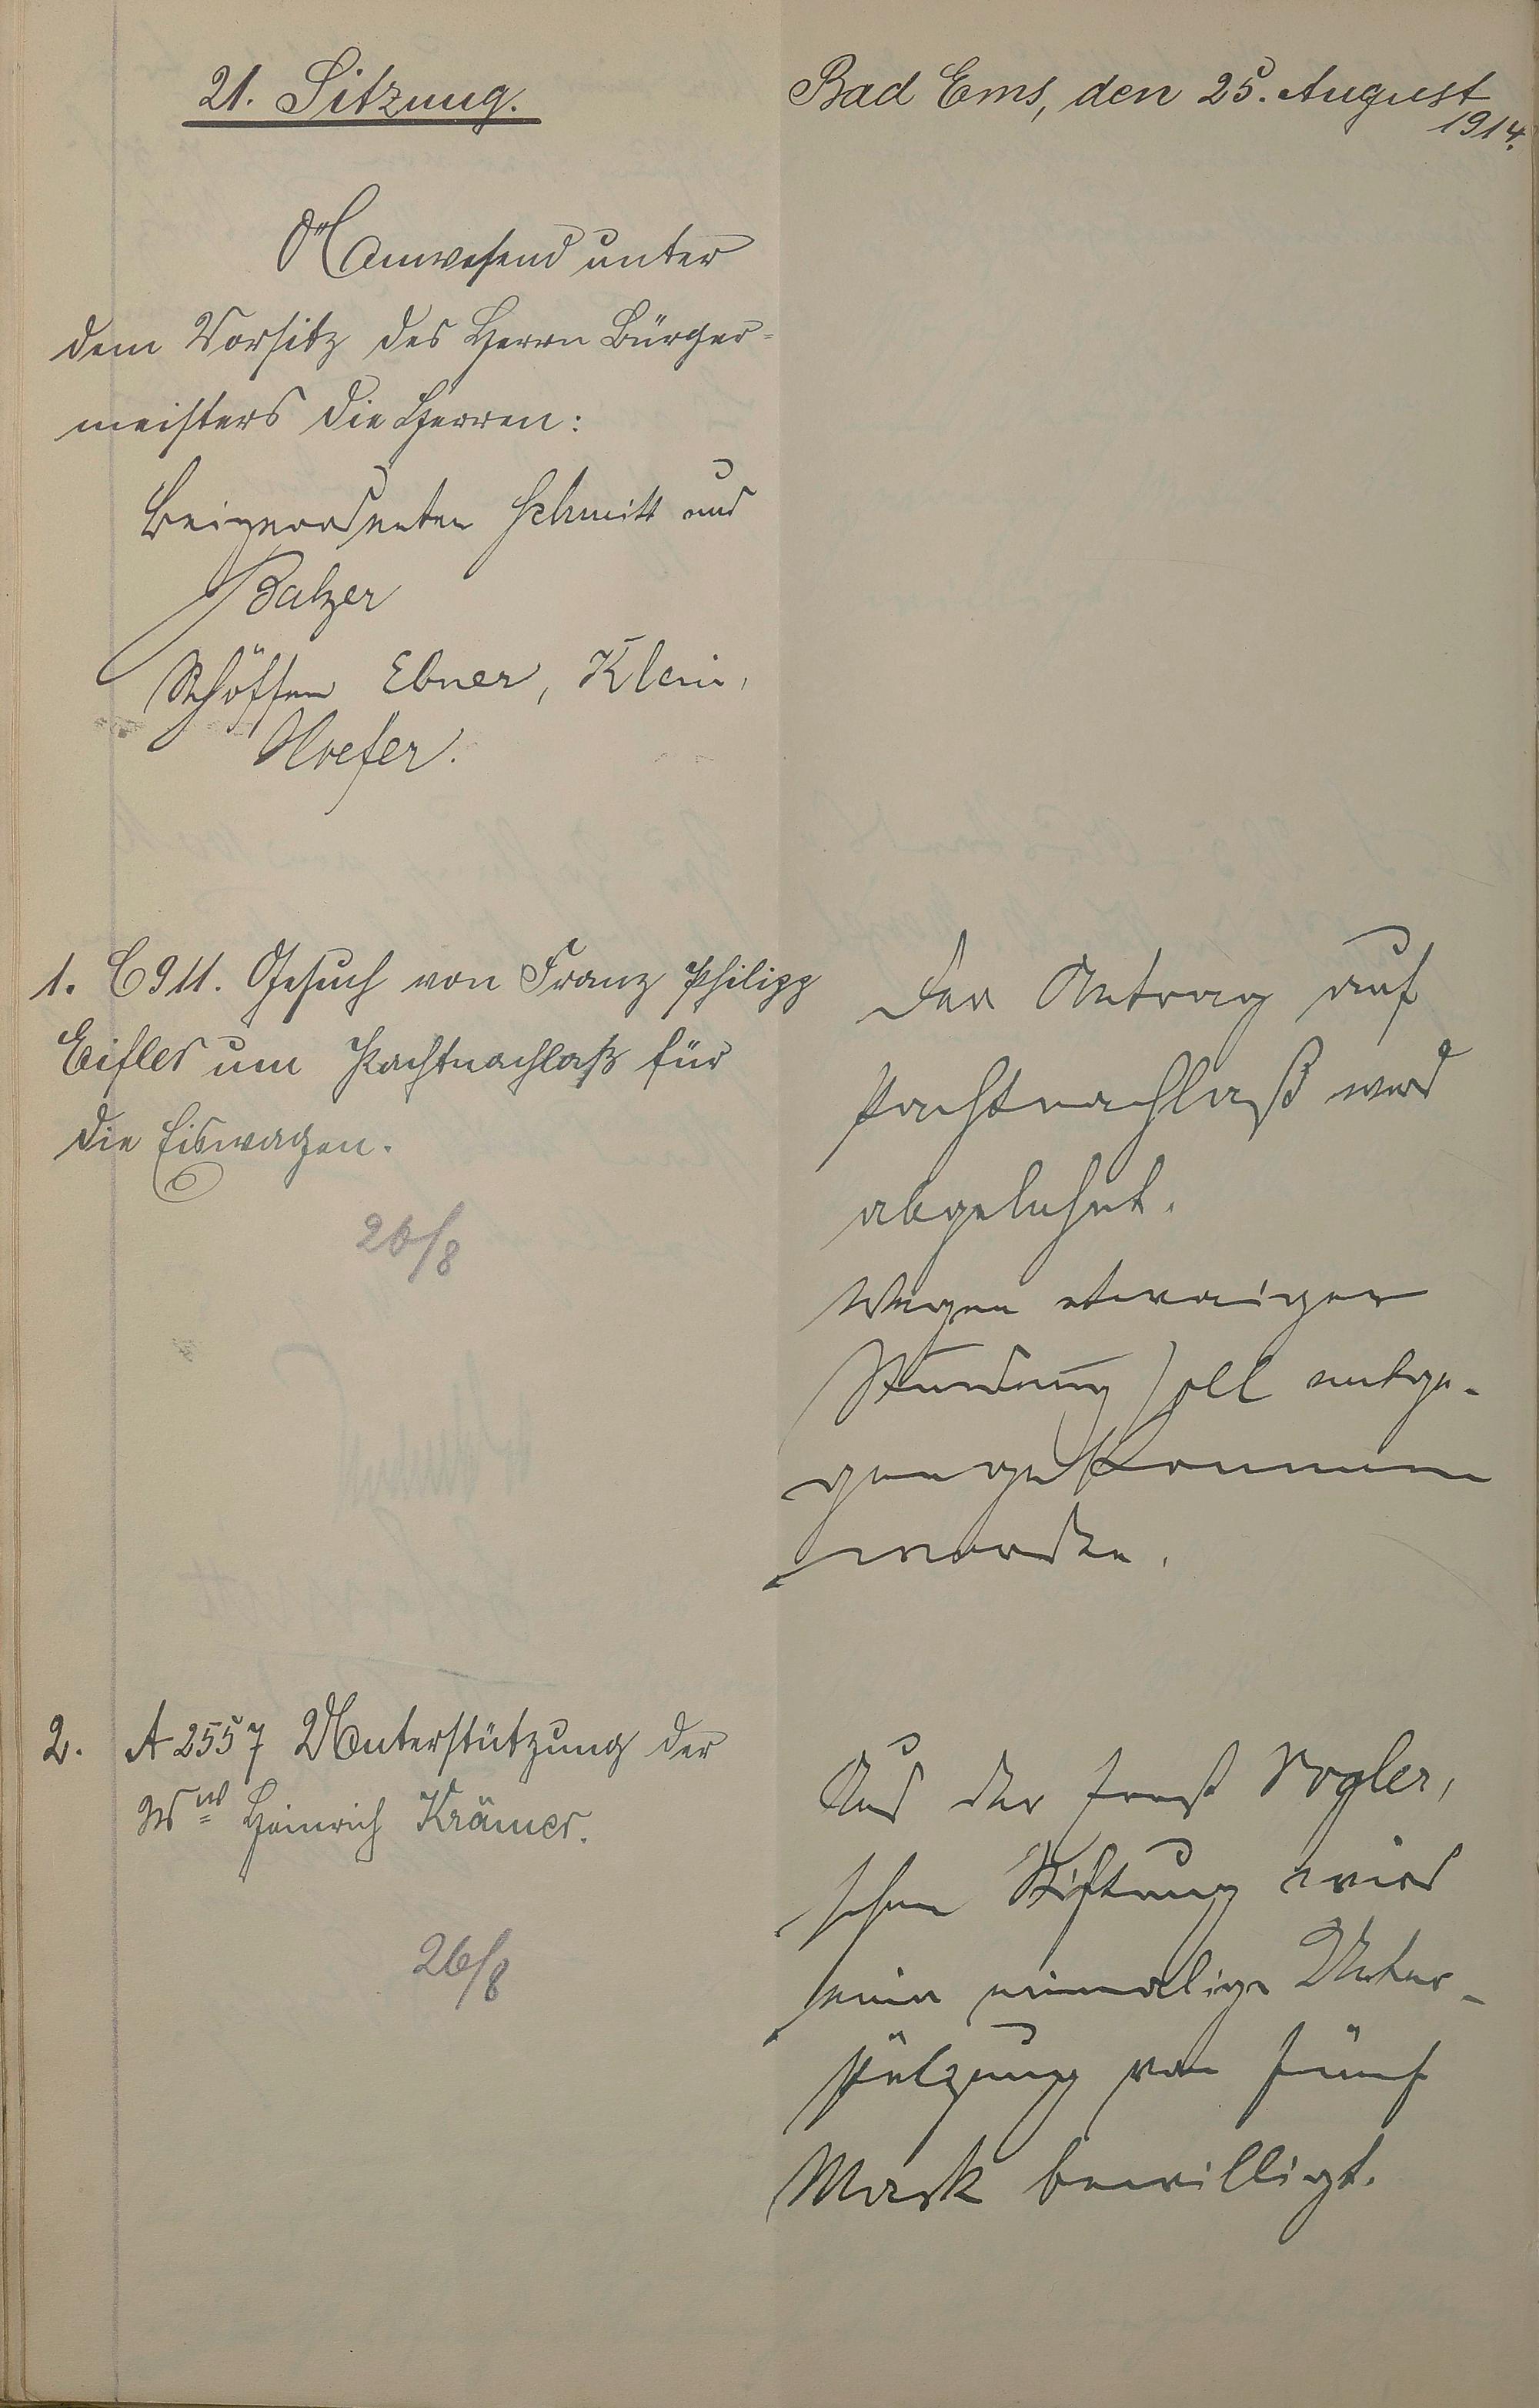 21. Sitzung.
Bad Ems, den 25. August
1914.
Anwesend unter
dem Vorsitz des Herrn Bürger=
meisters die Herren:
Beigeordneten Schmitt und
Balzer
Schöffen Ebner, Klein,
1. C 911. Gesuch von Franz Philipp
Eifler um Pachtnachlaß für
die Eiswagen.
26/8
Der Antrag auf
Pachtnachlaß wird
abgelehnt.
Wegen etwaiger
Stundung soll entge-
gengekommen
werden.
2. A 2557 Unterstützung der
Ww Heinrich Krämer.
26/8
Aus der Ernst Vogler,
schen Stiftung wird
eine einmalige Unter-
stützung von fünf
Mark bewilligt.